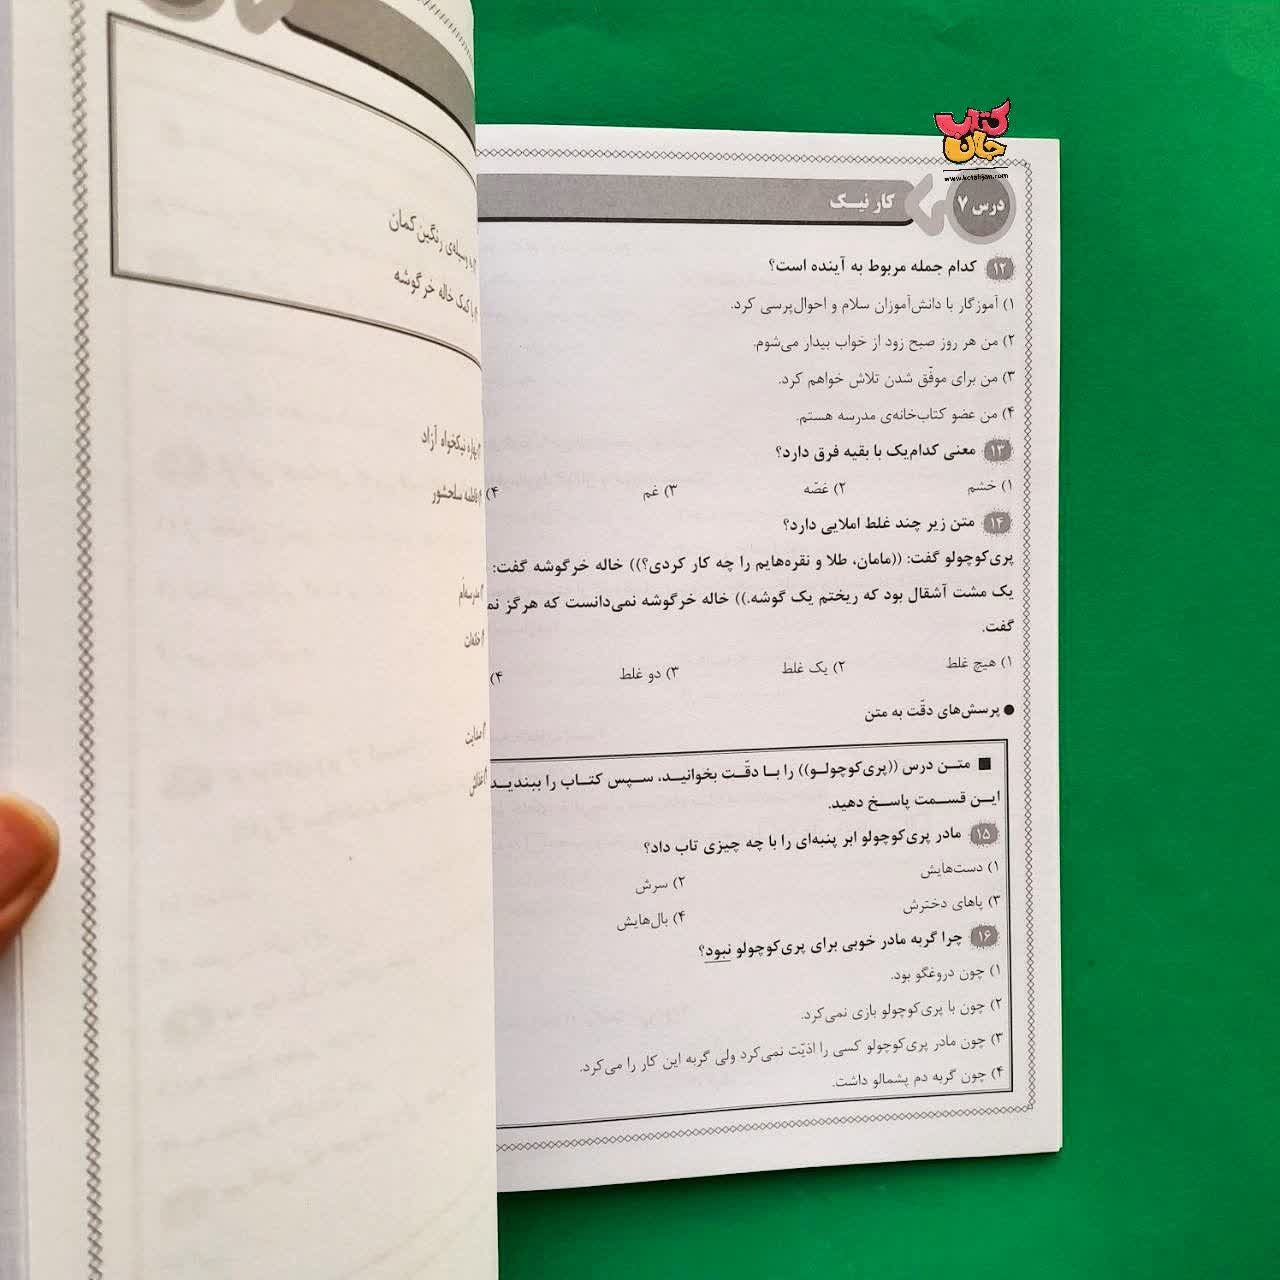 کتاب
جان
www.ketabjan.com
درس ۷
کار نیـک
۱۲ کدام جمله مربوط به آینده است؟
۱) آموزگار با دانش‌آموزان سلام و احوال‌پرسی کرد.
۲) من هر روز صبح زود از خواب بیدار می‌شوم.
۳) من برای موفّق شدن تلاش خواهم کرد.
۴) من عضو کتاب‌خانه‌ی مدرسه هستم.
۱۳ معنی کدام‌یک با بقیه فرق دارد؟
۱) خشم ۲) غصّه ۳) غم ۴)
۱۴ متن زیر چند غلط املایی دارد؟
پری‌کوچولو گفت: ((مامان، طلا و نقره‌هایم را چه کار کردی؟)) خاله خرگوشه گفت:
یک مشت آشقال بود که ریختم یک گوشه.)) خاله خرگوشه نمی‌دانست که هرگز
گفت.
۱) هیچ غلط ۲) یک غلط ۳) دو غلط ۴)
● پرسش‌های دقّت به متن
■ متـن درس ((پری‌کوچولـو)) را بـا دقّـت بخوانیـد، سـپس کتـاب را ببندیـد
ایـن قسـمت پاسـخ دهید.
۱۵ مادر پری‌کوچولو ابر پنبه‌ای را با چه چیزی تاب داد؟
۱) دست‌هایش ۲) سرش
۳) پاهای دخترش ۴) بال‌هایش
۱۶ چرا گربه مادر خوبی برای پری‌کوچولو نبود؟
۱) چون دروغگو بود.
۲) چون با پری‌کوچولو بازی نمی‌کرد.
۳) چون مادر پری‌کوچولو کسی را اذیّت نمی‌کرد ولی گربه این کار را می‌کرد.
۴) چون گربه دم پشمالو داشت.
وسیله‌ی رنگین‌کمان
کمک خاله خرگوشه
نیکخواه آزاد
فاطمه سلحشور